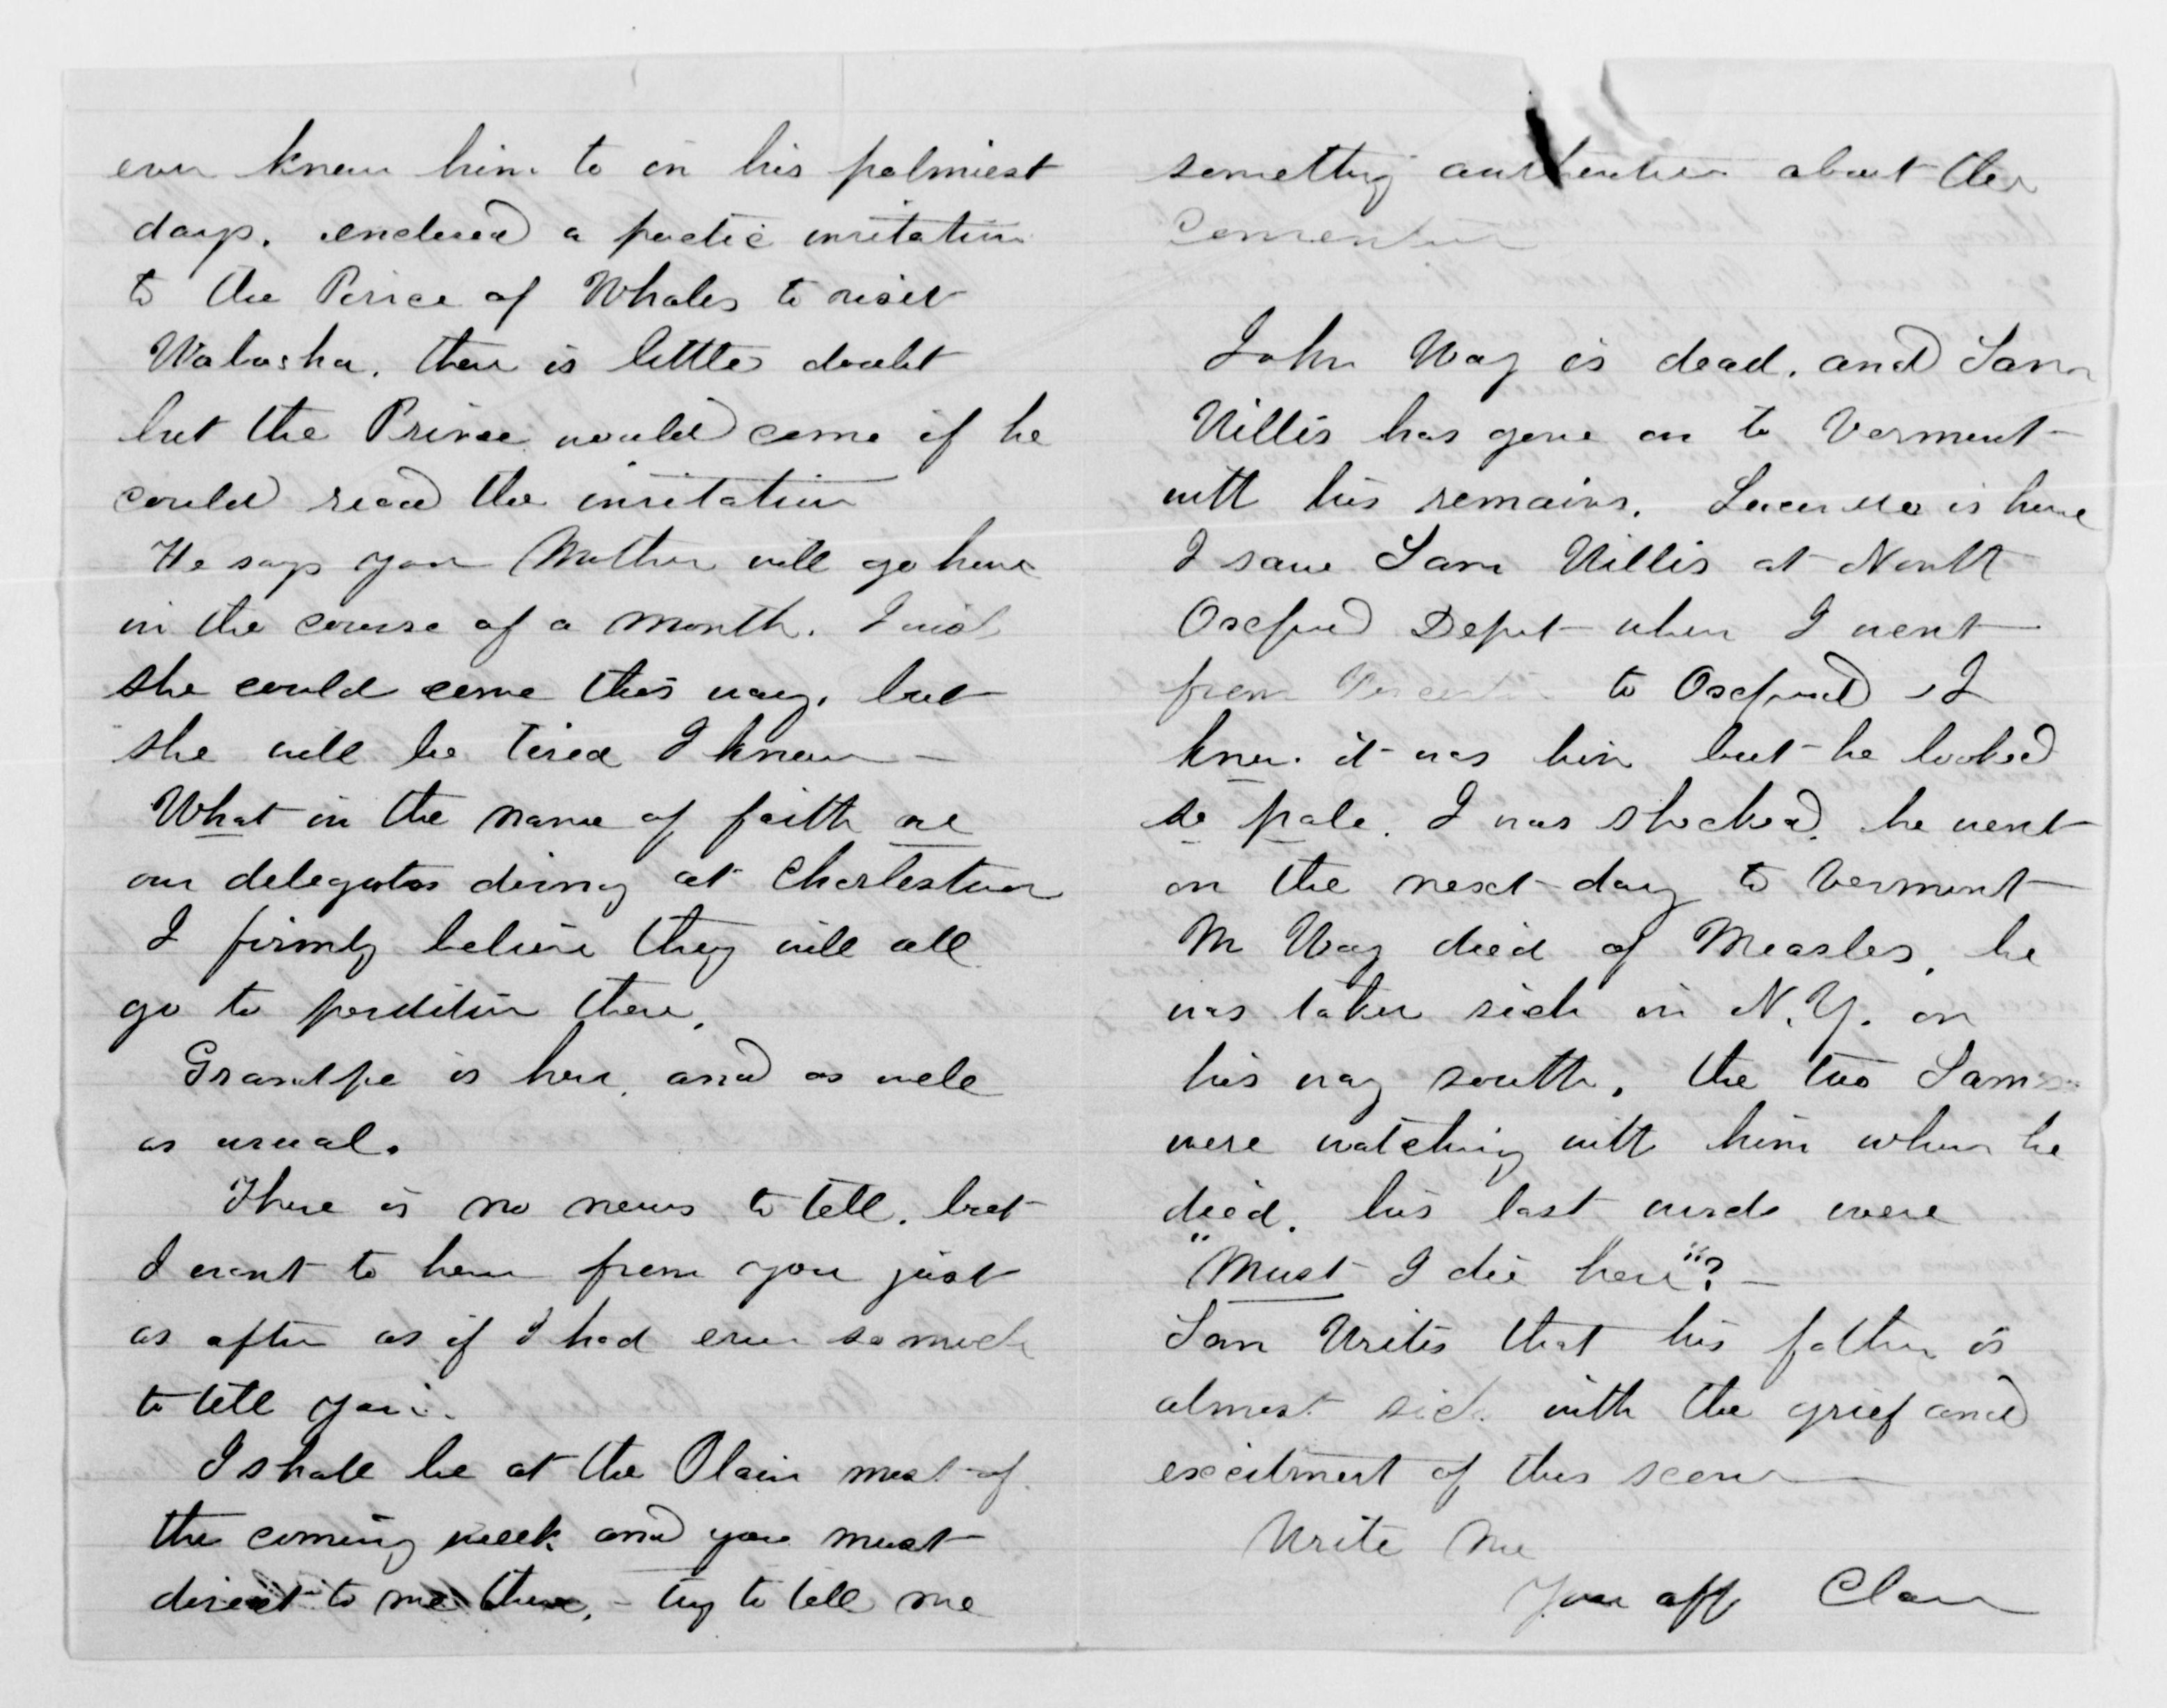 ever knew him to in his palmiest
days. enclosed a poetic invitation
to the Prince of Whales to visit
Wabasha. there is little doubt
but the Prince would come if he
could read the invitation
He says your Mother will go home
in the course of a month. I wish
she could come this way. but
she will be tired I know –
What in the name of faith are
our delegates doing at Charleston
I firmly believe they will all
go to perdition there.
Grandpa is here, and as well
as usual.
There is no news to tell. but
I want to hear from you just
as often as if I had ever so much
to tell you.
I shall be at the Plain most of
the coming week and you must
direct to me there, – try to tell me
something authentic about the
Convention
John Way is dead. and Sam
Willis has gone on to Vermont
with his remains. is here
I saw Sam Willis at North
Oxford Depot when I went
from to Oxford I
knew it was him but he looked
so pale. I was shocked. he went
on the next day to Vermont
Mr Way died of Measles, he
was taken sick in N.Y. on
his way south. the two Sams
were watching with him when he
died. his last words were
"Must I die here"? –
Sam Writes that his father is
almost sick with the grief and
excitment of this scene
Write Me
Your aff Clara